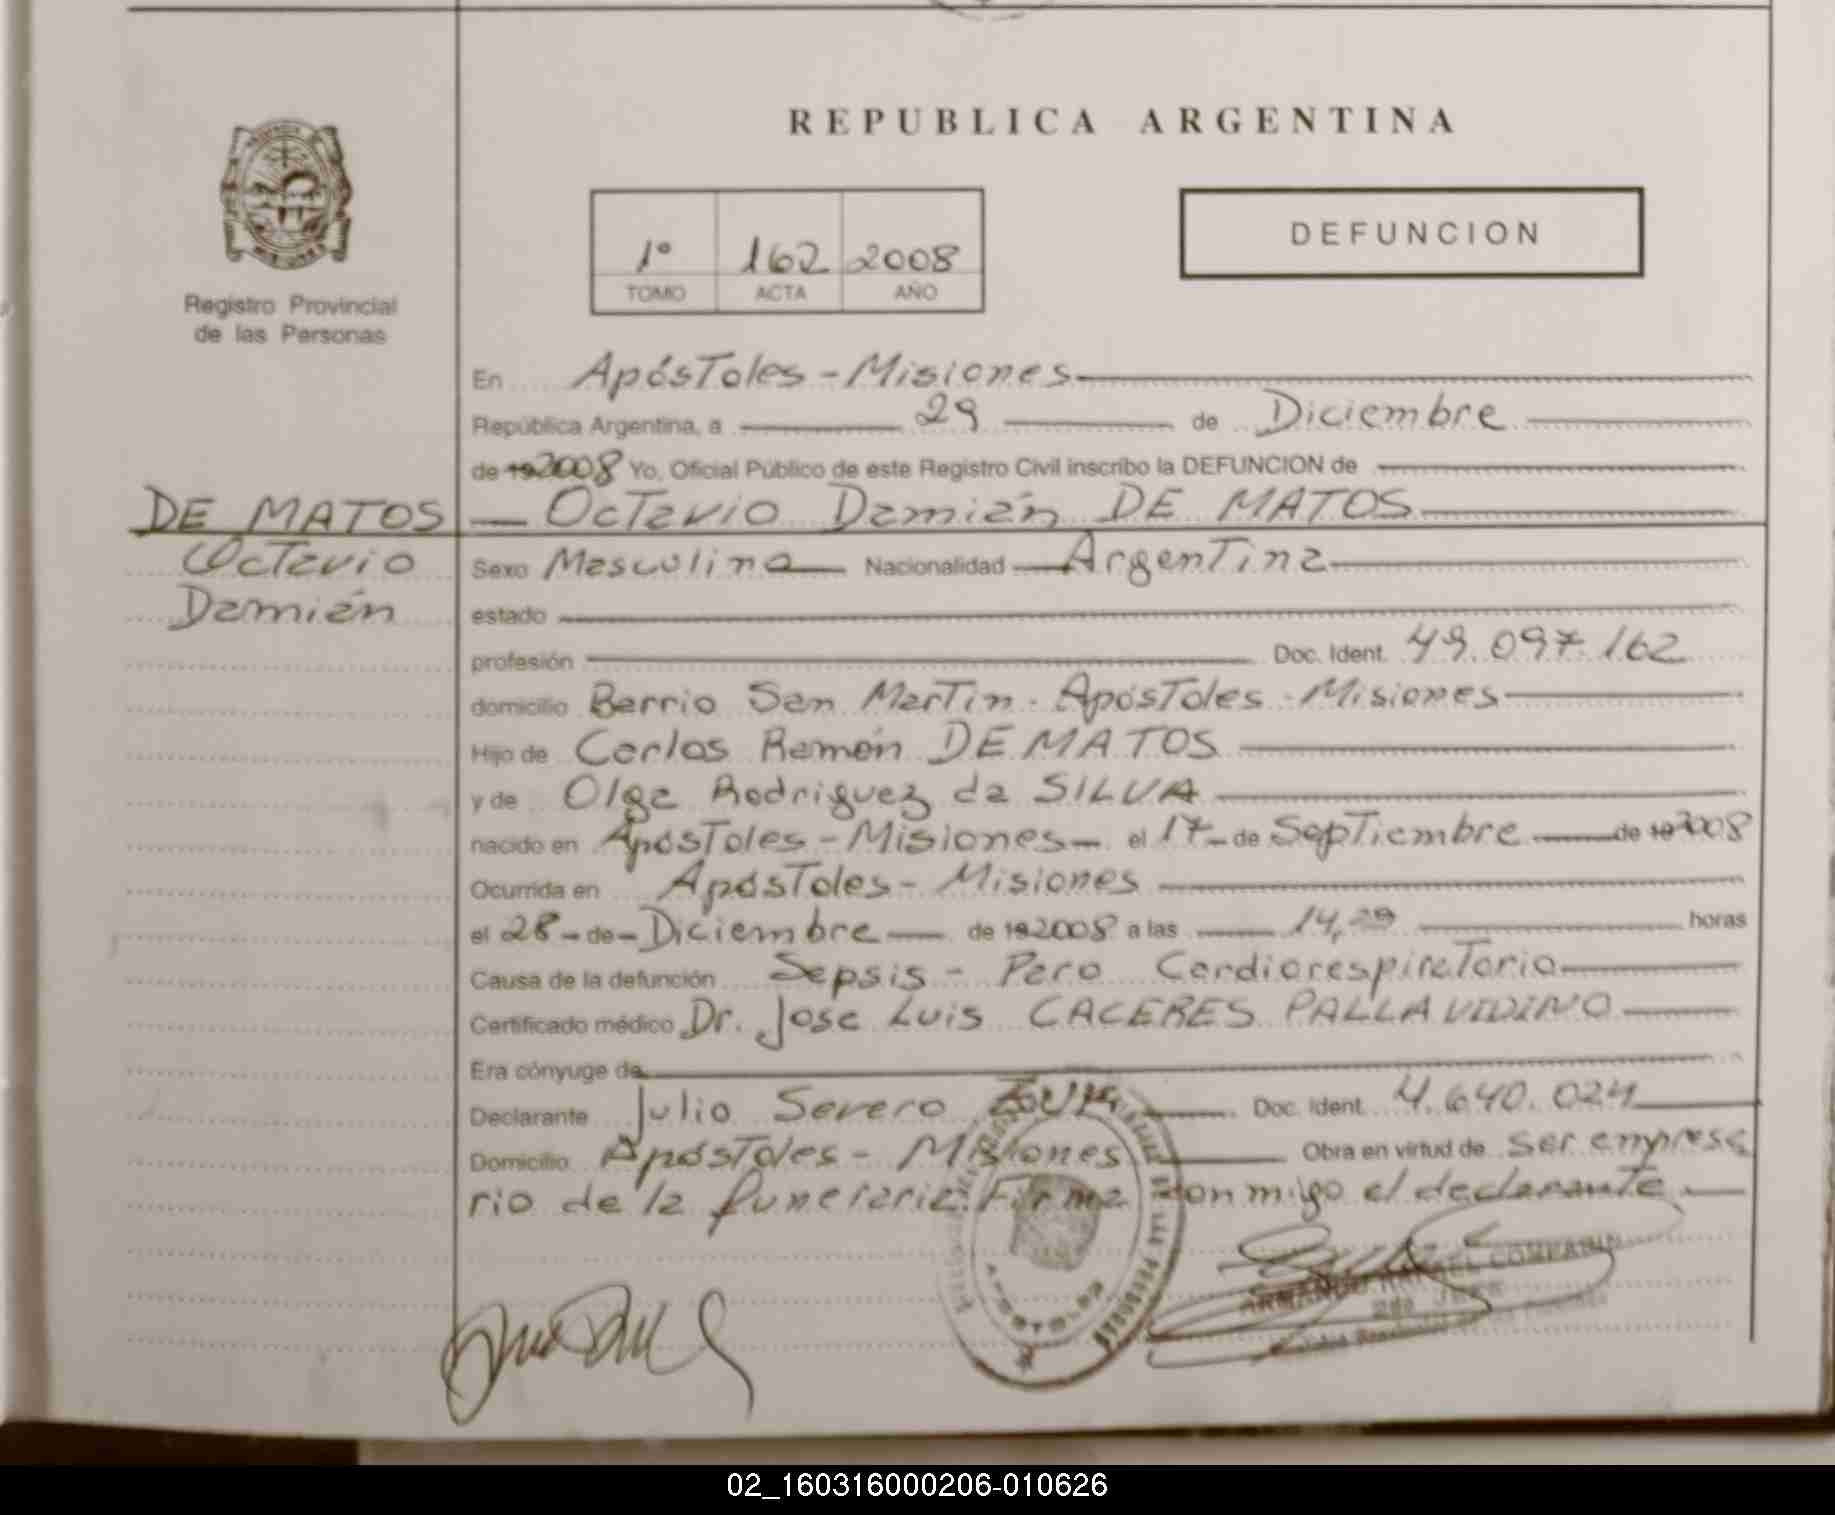 REPUBLICA ARGENTINA
DEFUNCION
1º 162 2008
TOMO ACTA AÑO
Registro Provincial
de las Personas
En Apóstoles - Misiones
República Argentina, a 29 de Diciembre
de 19 2008 Yo, Oficial Público de este Registro Civil inscribo la DEFUNCION de
DE MATOS
Octavio
Damián
Octavio Damián DE MATOS
Sexo Masculino Nacionalidad Argentina
estado
profesión Doc. Ident. 49.097.162
domicilio Barrio San Martin - Apóstoles - Misiones
Hijo de Carlos Ramón DE MATOS
y de Olga Rodriguez da SILVA
nacido en Apóstoles - Misiones - el 17 - de Septiembre de 19 2008
Ocurrida en Apóstoles - Misiones
el 28 - de - Diciembre de 19 2008 a las 14, horas
Causa de la defunción Sepsis - Paro Cardiorespiratorio
Certificado médico Dr. Jose Luis CACERES PALLAVIDINO
Era cónyuge de
Declarante Julio Severo Doc. Ident. 4.640.024
Domicilio Apóstoles - Misiones Obra en virtud de ser empresa
rio de la funeraria. Firma conmigo el declarante
DE LAS PERSONAS
APOSTOLES
ARMANDO RAFAEL
02_160316000206-010626